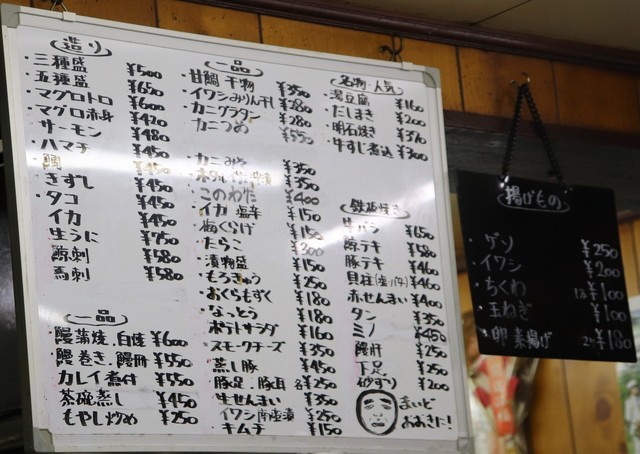 造り
三種盛 ¥500
五種盛 ¥650
マグロトロ ¥600
マグロ赤身 ¥420
サーモン ¥480
ハマチ ¥450
鯛 ¥450
きずし ¥450
タコ ¥450
イカ ¥450
生うに ¥750
鯨刺 ¥580
馬刺 ¥580
一品
鰻蒲焼,白焼 ¥600
鰻巻き,鰻肝 ¥550
カレイ煮付 ¥550
茶碗蒸し ¥450
もやし炒め ¥250
一品
甘鯛 干物 ¥350
イワシみりん干し ¥280
カニグラタン ¥280
カニつめ ¥550
カニみそ ¥350
ホタルイカ沖漬 ¥350
このわた ¥400
イカ 塩辛 ¥150
梅くらげ ¥150
たらこ ¥300
漬物盛 ¥150
もろきゅう ¥250
おくらもずく ¥180
なっとう ¥180
ポテトサラダ ¥160
スモークチーズ ¥350
蒸し豚 ¥450
豚足,豚耳 各¥250
生せんまい ¥350
イワシ南蛮漬 ¥250
キムチ ¥150
名物・人気
湯豆腐 ¥160
だしまき ¥200
明石焼き ¥370
牛すじ煮込 ¥300
鉄板焼き
牛バラ ¥650
鯨テキ ¥580
豚テキ ¥460
貝柱(塩・バタ) ¥460
赤せんまい ¥400
タン ¥350
ミノ ¥450
鰻肝 ¥250
下足 ¥250
砂ずり ¥200
まいど
おおきに!
揚げもの
ゲソ ¥250
イワシ ¥200
ちくわ ¥100
玉ねぎ ¥100
卵素揚げ ¥180